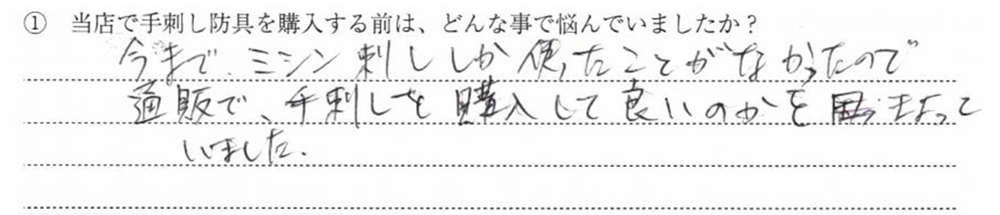 ① 当店で手刺し防具を購入する前は、どんな事で悩んでいましたか？
今まで、ミシン刺ししか使ったことがなかったので
通販で、手刺しを購入して良いのかを まよって
いました.